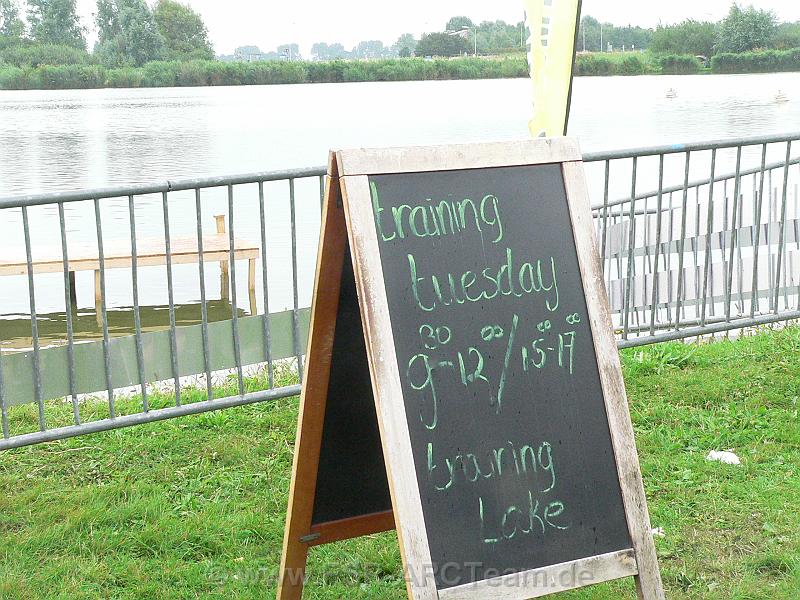 training
tuesday
9³⁰-12⁰⁰/15⁰⁰-17⁰⁰
training
Lake
© www.FSR-ARCTeam.de